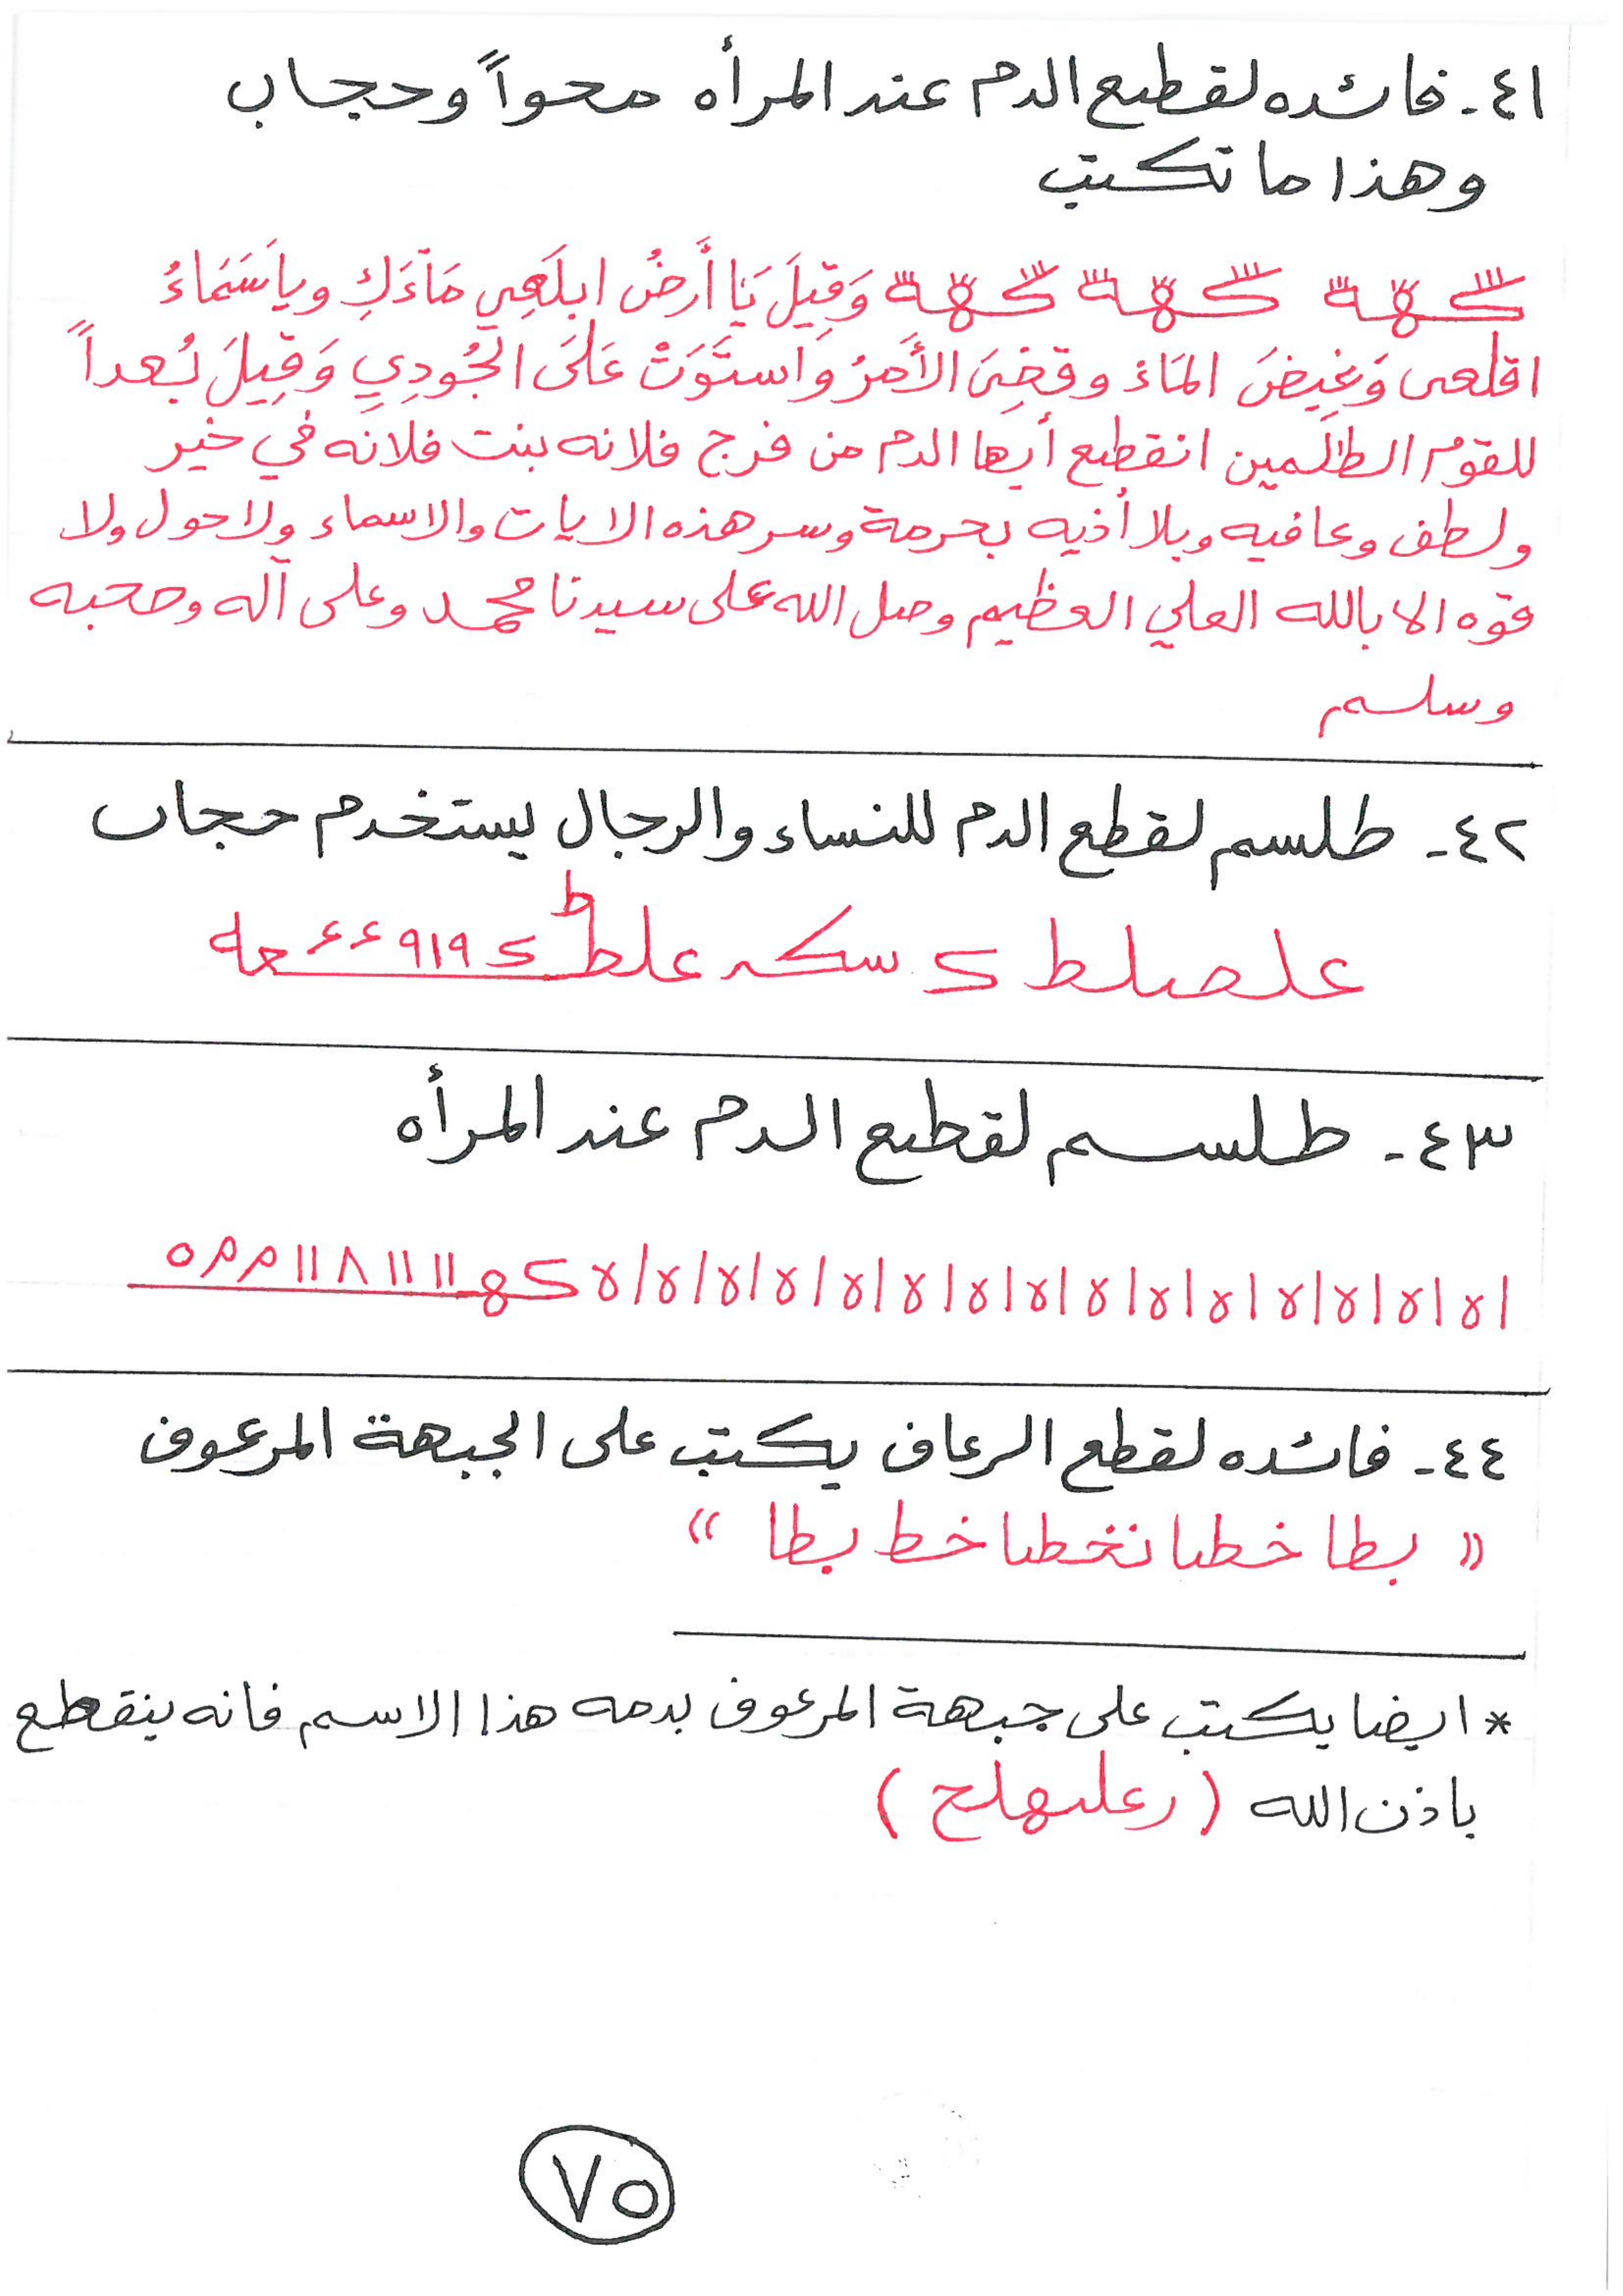 ٤١- فائده لقطيع الدم عند المرأه محواً وحجاب
وهذا ما تكتب
وَقِيلَ يَا أَرضُ ابلَعِي مَآءَكِ وياسَمَاءُ
اقلعى وَغِيضَ المَاءُ وقضِىَ الأَمرُ وَاستَوَتْ عَلَى الجُودِيِ وَقِيلَ بُعداً
للقوم الظالمين انقطع أيها الدم من فرج فلانه بنت فلانه في خير
ولطف وعافيه وبلا أذيه بحرمة وسر هذه الايات والاسماء ولاحول ولا
قوه الا بالله العلي العظيم وصل الله على سيدنا محمد وعلى آله وصحبه
وسلم
٤٢- طلسم لقطع الدم للنساء والرجال يستخدم حجاب
علصلط سكه علط ٩١٩ ٤٤
٤٣- طلسم لقطيع الدم عند المرأه
٤٤- فائده لقطع الرعاف يكتب على الجبهة المرعوف
" بطا خطا خط بطا "
* ايضا يكتب على جبهة المرعوف بدمه هذا الاسم فانه ينقطع
باذن الله
٧٥